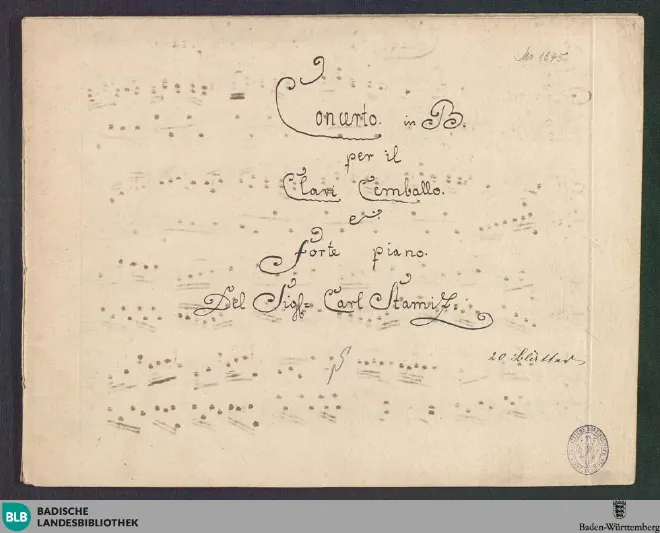 Ms 1845
Concerto. in B.
per il
Clavi Cemballo.
e
forte piano.
Del Sigl= Carl Stamiz.
20. Blätter
BLB
BADISCHE
LANDESBIBLIOTHEK
Baden-Württemberg